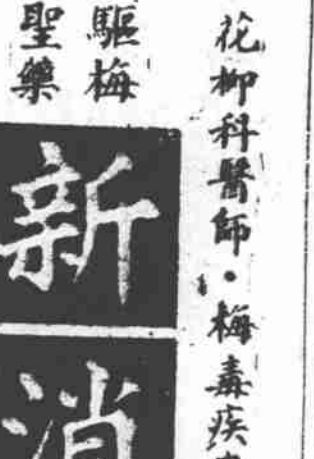 花柳科醫師・梅毒疾
驅梅
聖藥
新消